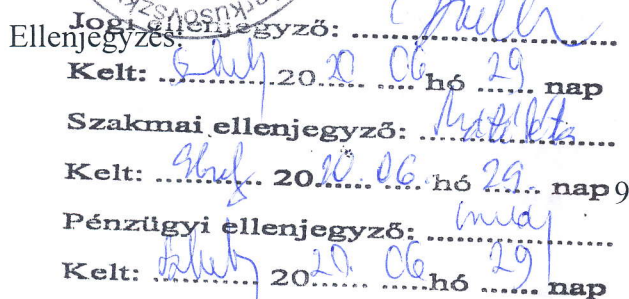 Jogi ellenjegyző: ..................
Ellenjegyzés:
Kelt: ............ 20 20 06 hó 29 nap
Szakmai ellenjegyző: ..................
Kelt: ............ 20 20. 06. hó 29. nap 9
Pénzügyi ellenjegyző: ..................
Kelt: ............ 20 20. 06 hó 29 nap